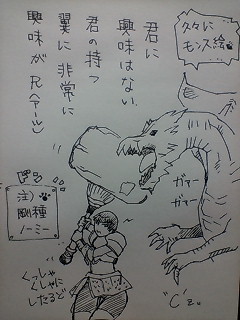 久々に
モンス絵
君に
興味はない、
君の持つ
翼に非常に
興味が
ガァー
ガァー
注)
剛種
ノーミー
くっしゃ
くしゃに
したるど
"C"z.